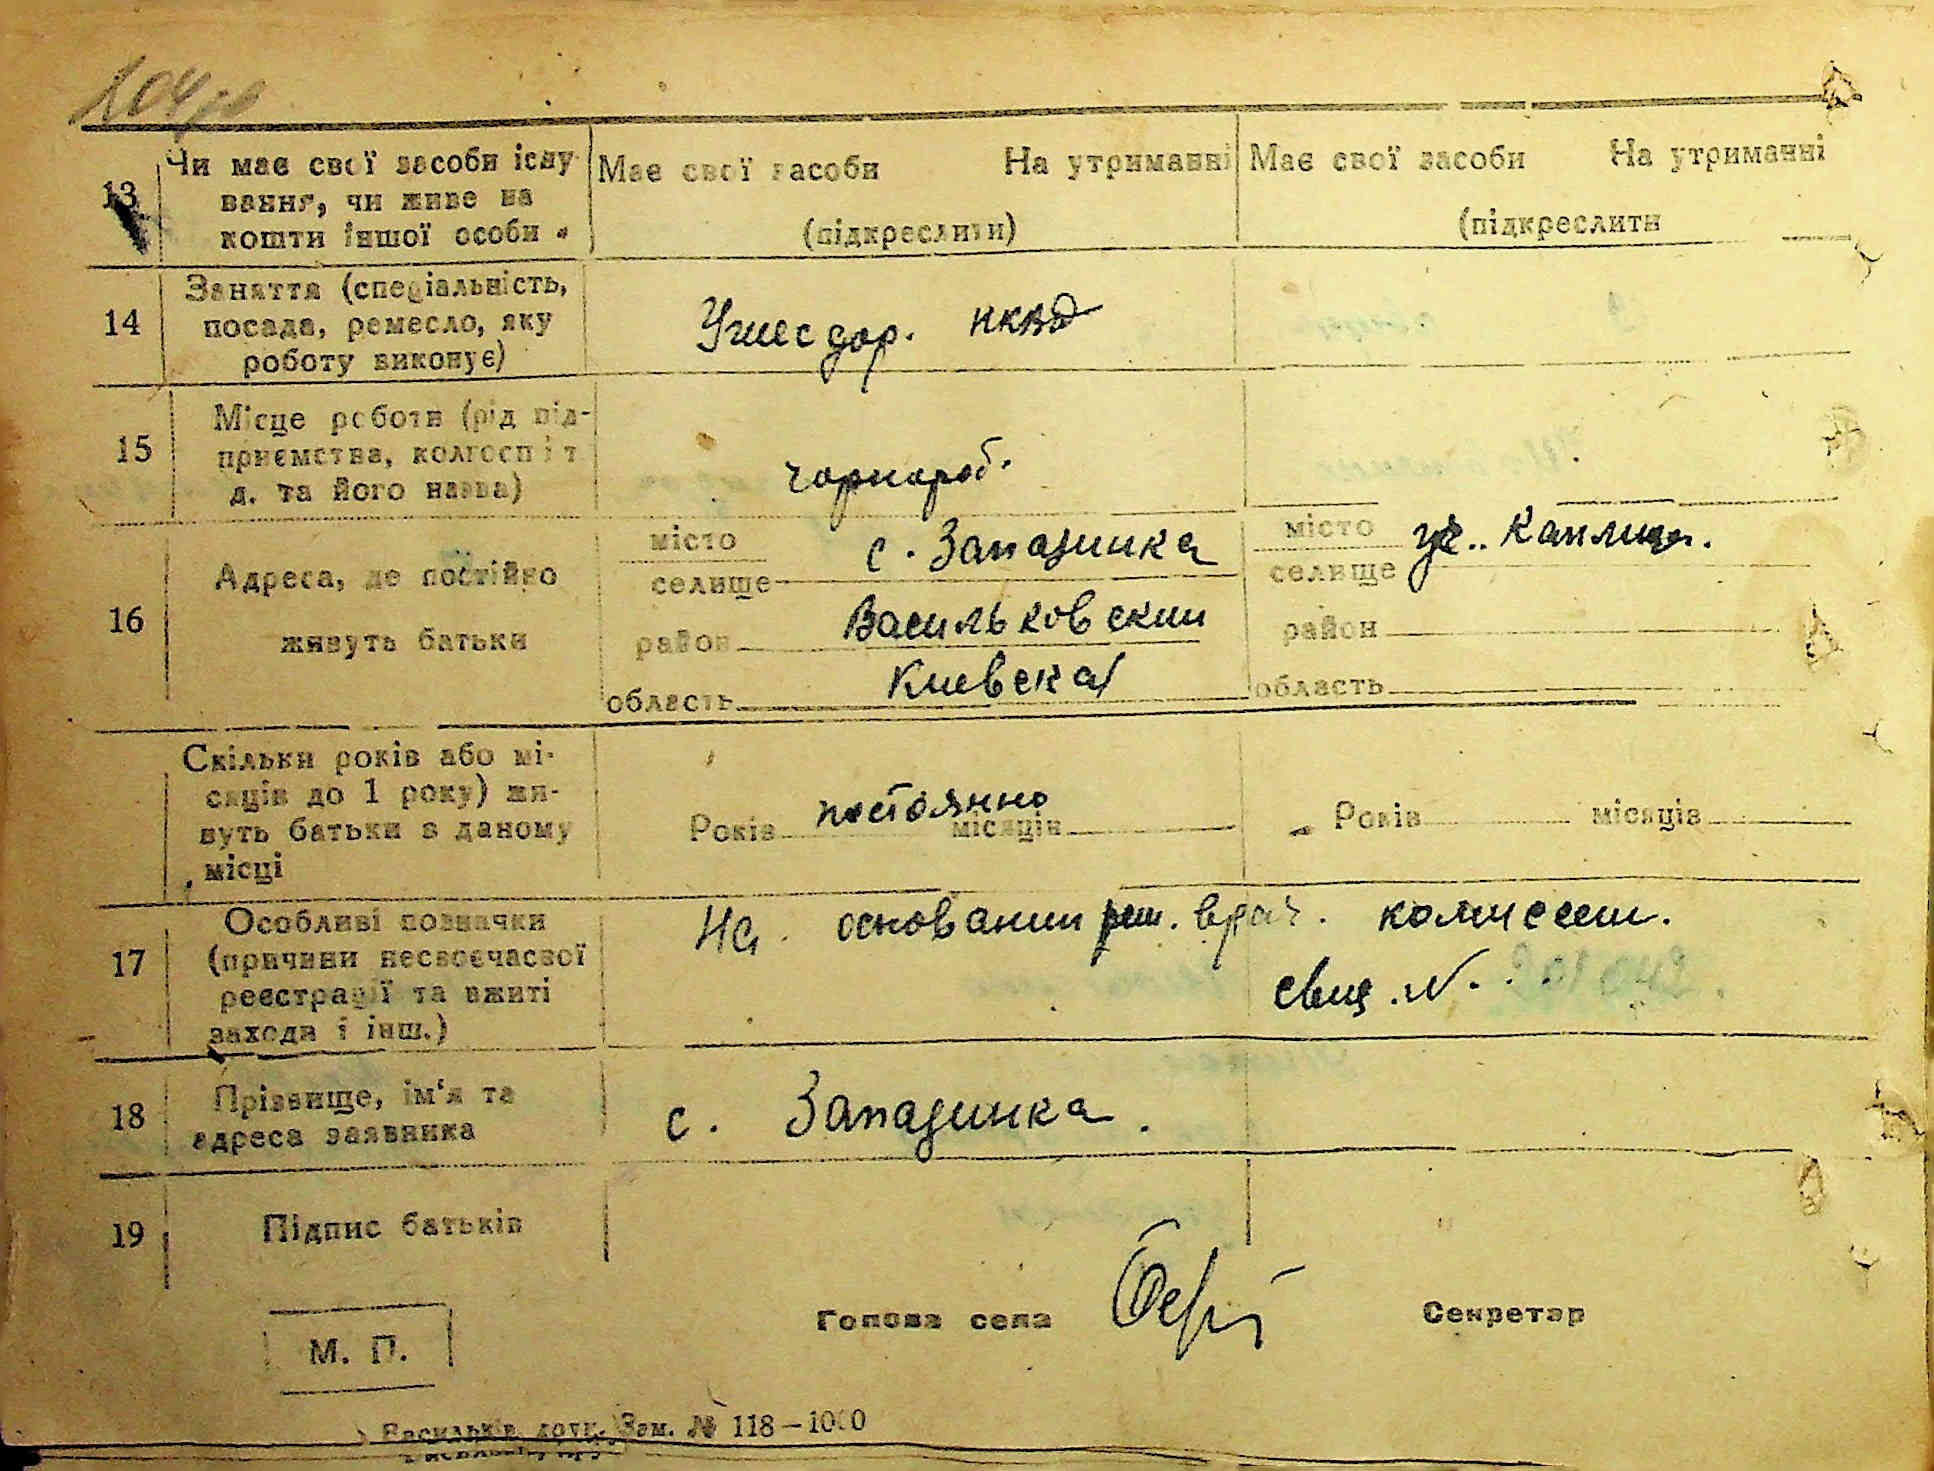 104
13 Чи має свої засоби існу
вання, чи живе на
кошти іншої особи
Має свої засоби На утриманні
(підкреслити)
Має свої засоби На утриманні
(підкреслити
14 Заняття (спеціальність,
посада, ремесло, яку
роботу виконує)
Ушосдор. НКВД
15 Місце роботи (рід під-
приємства, колгосп і т
д. та його назва)
чорнороб.
16 Адреса, де постійно
живуть батьки
місто
селище с. Западинка
район Васильковский
область Киевская
місто
селище
район
область
Скільки років або мі-
сяців до 1 року) жи-
вуть батьки в даному
місці
Років постоянно місяців
Років місяців
17 Особливі позначки
(причини несвоєчасної
реєстрації та вжиті
заходи і інш.)
На основании реш. врач. комиссии.
свид. №
18 Прізвище, ім'я та
адреса заявника
с. Западинка.
19 Підпис батьків
М. П.
Голова села Секретар
Васильків, друк. Зам. № 118—1000